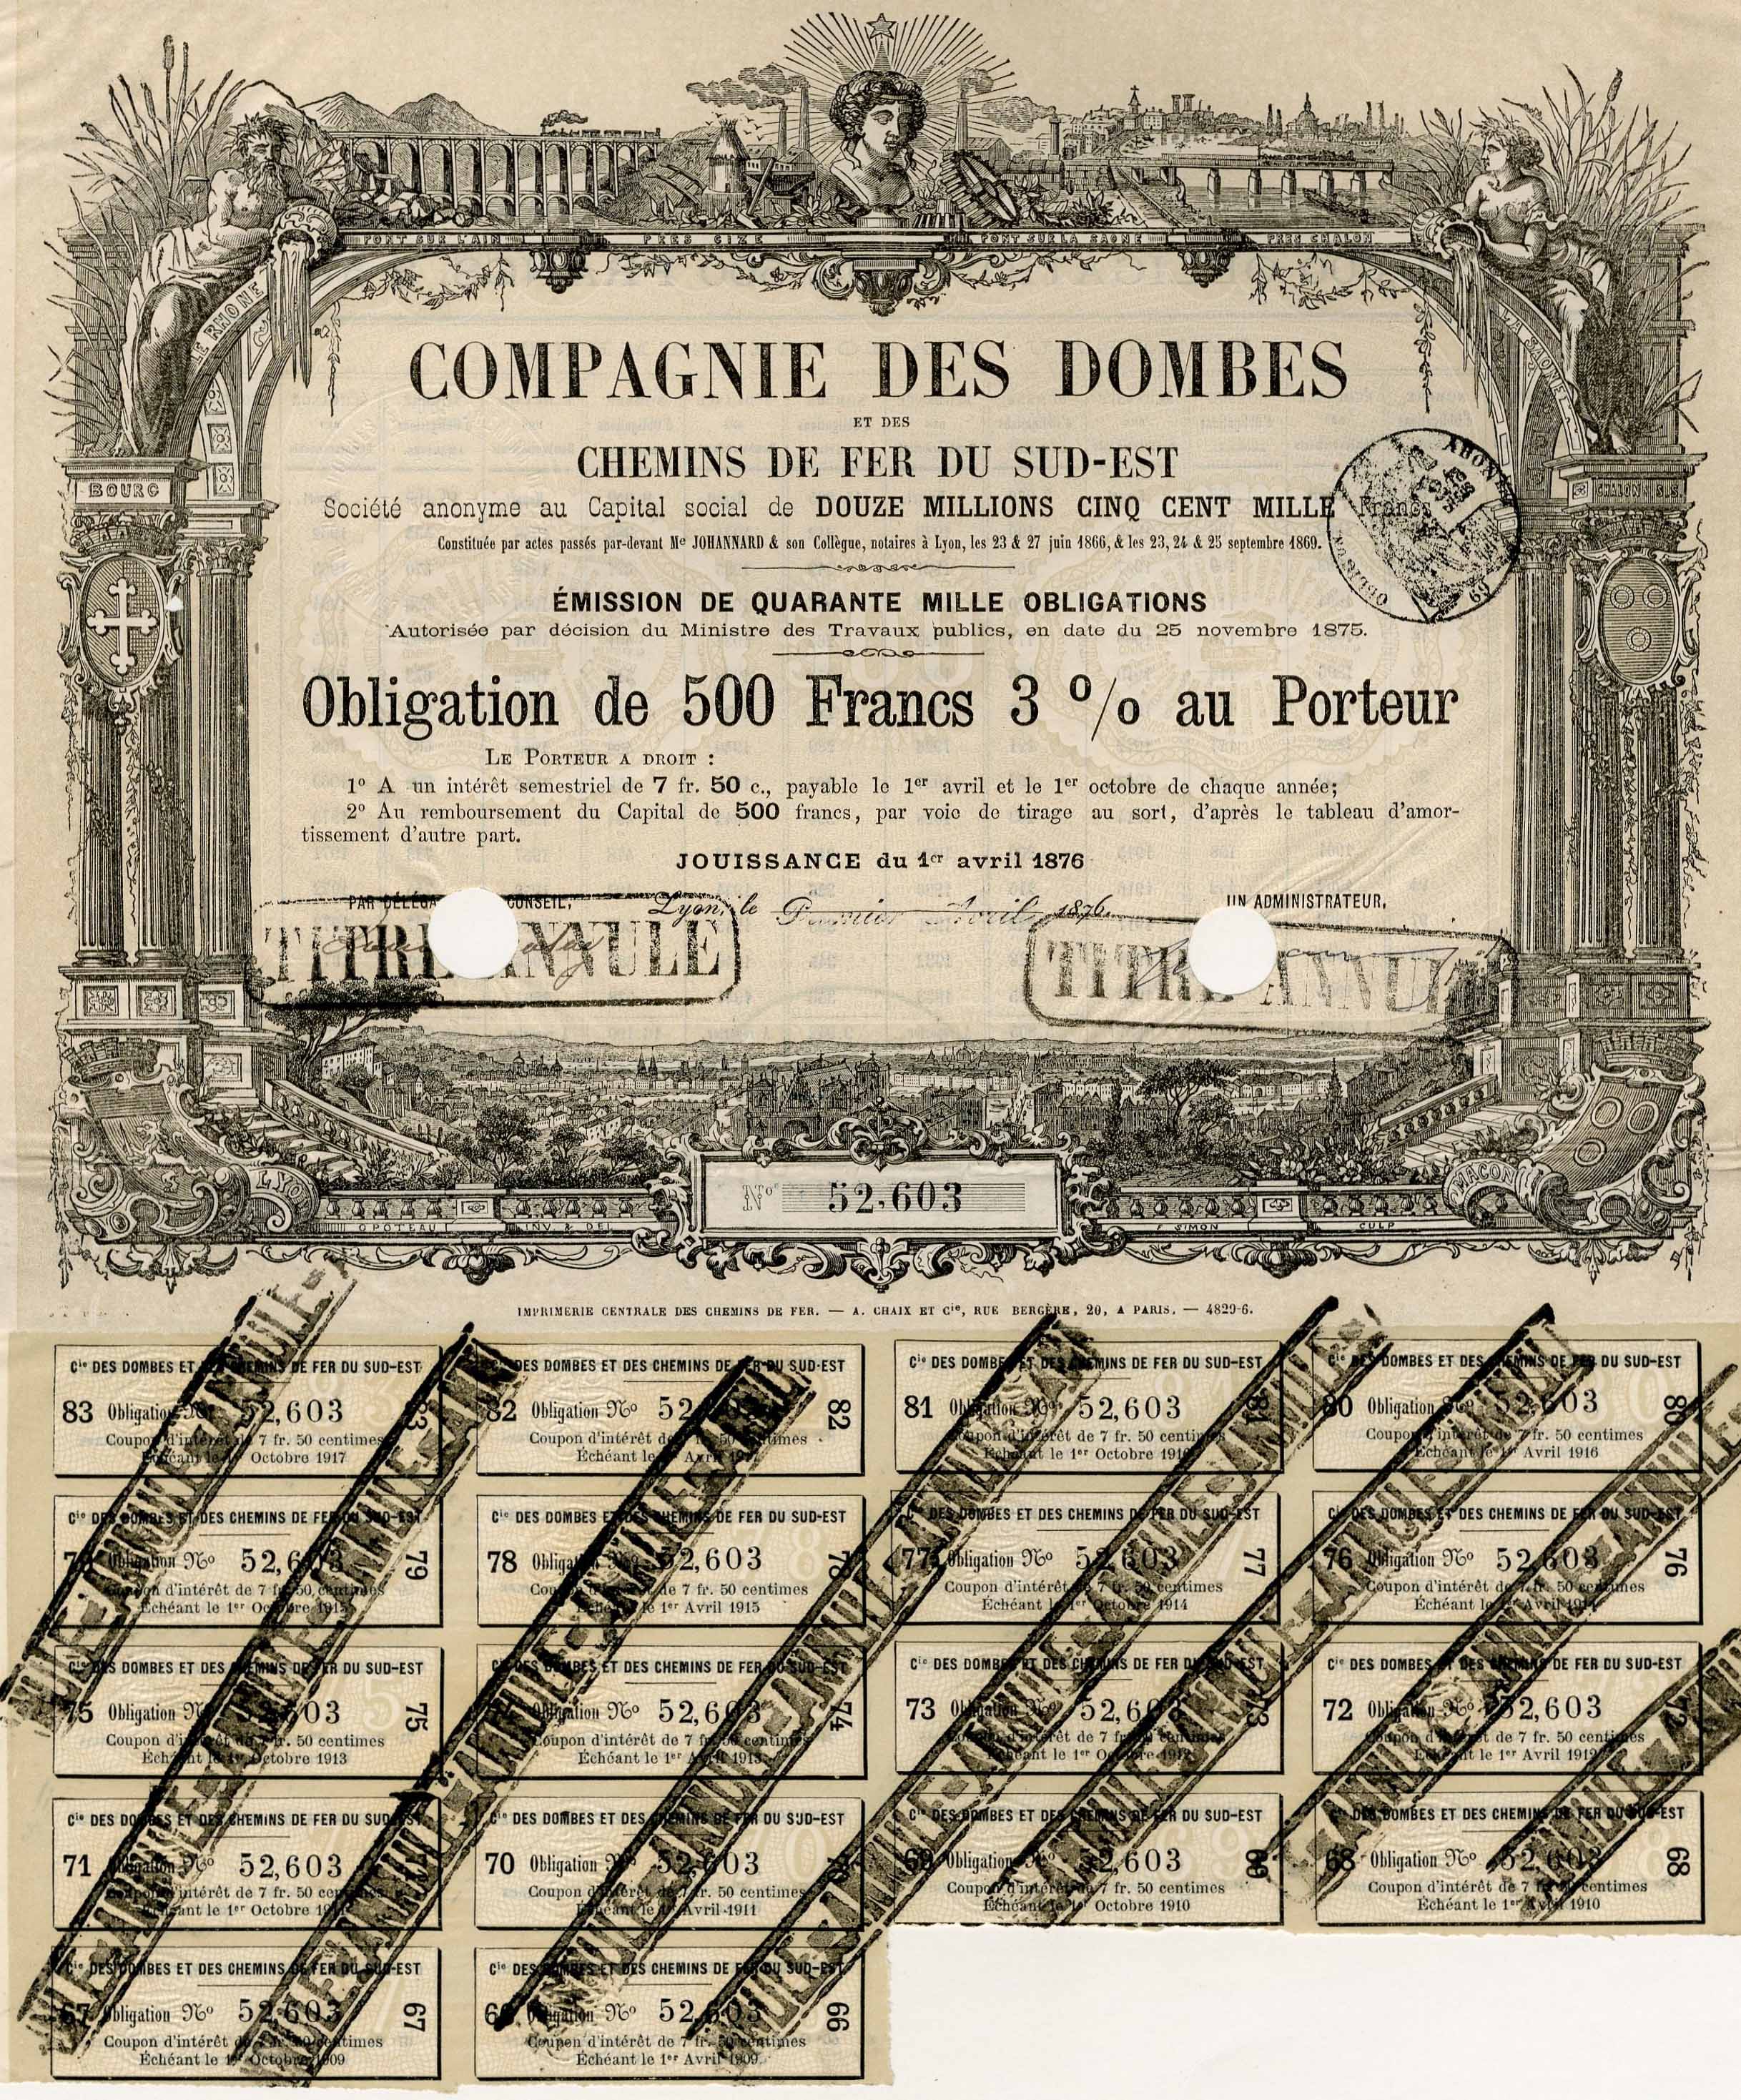 PONT SUR L'AIN PRES CIZE PONT SUR LA SAONE PRES CHALON
LE RHONE
LA SAONE
COMPAGNIE DES DOMBES
ET DES
CHEMINS DE FER DU SUD-EST
BOURG
CHALON S SNE
Société anonyme au Capital social de DOUZE MILLIONS CINQ CENT MILLE Francs
Constituée par actes passés par-devant Me JOHANNARD & son Collègue, notaires à Lyon, les 23 & 27 juin 1866, & les 23, 24 & 25 septembre 1869.
ÉMISSION DE QUARANTE MILLE OBLIGATIONS
Autorisée par décision du Ministre des Travaux publics, en date du 25 novembre 1875.
Obligation de 500 Francs 3 % au Porteur
LE PORTEUR A DROIT :
1º A un intérêt semestriel de 7 fr. 50 c., payable le 1er avril et le 1er octobre de chaque année;
2º Au remboursement du Capital de 500 francs, par voie de tirage au sort, d'après le tableau d'amor-
tissement d'autre part.
JOUISSANCE du 1er avril 1876
PAR DÉLÉGA CONSEIL, Lyon, le Premier Avril 1876 UN ADMINISTRATEUR,
TITRE ANNULE TITRE ANNULE
LYON
MACON
Nº 52,603
O POTEAU INV & DEL F SIMON CULP
IMPRIMERIE CENTRALE DES CHEMINS DE FER. — A. CHAIX ET Cie, RUE BERGÈRE, 20, A PARIS. — 4829-6.
Cie DES DOMBES ET CHEMINS DE FER DU SUD-EST
83 Obligation Nº 52,603 83
Coupon d'intérêt de 7 fr. 50 centimes
Échéant le 1er Octobre 1917
DES DOMBES ET DES CHEMINS DE FER DU SUD-EST
82 Obligation Nº 52 82
Coupon d'intérêt de 50 centimes
Échéant le Avril
Cie DES DOMBES ET DES CHEMINS DE FER DU SUD-EST
81 Obligation Nº 52,603 81
Coupon d'intérêt de 7 fr. 50 centimes
Échéant le 1er Octobre 1916
Cie DES DOMBES ET DES CHEMINS DE FER DU SUD-EST
80 Obligation Nº 52,603 80
Coupon d'intérêt de 7 fr. 50 centimes
Échéant le 1er Avril 1916
Cie DES DOMBES ET DES CHEMINS DE FER DU SUD-EST
79 Obligation Nº 52,603 79
Coupon d'intérêt de 7 fr. 50 centimes
Échéant le 1er Octobre 1915
Cie DES DOMBES ET DES CHEMINS DE FER DU SUD-EST
78 Obligation Nº 52,603 78
Coupon d'intérêt de 7 fr. 50 centimes
Échéant le 1er Avril 1915
Cie DES DOMBES ET DES CHEMINS DE FER DU SUD-EST
77 Obligation Nº 52,603 77
Coupon d'intérêt de 7 fr. 50 centimes
Échéant le 1er Octobre 1914
Cie DES DOMBES ET DES CHEMINS DE FER DU SUD-EST
76 Obligation Nº 52,603 76
Coupon d'intérêt de 7 fr. 50 centimes
Échéant le 1er Avril 1914
Cie DES DOMBES ET DES CHEMINS DE FER DU SUD-EST
75 Obligation Nº 52,603 75
Coupon d'intérêt de 7 fr. 50 centimes
Échéant le 1er Octobre 1913
Cie DES DOMBES ET DES CHEMINS DE FER DU SUD-EST
74 Obligation Nº 52,603 74
Coupon d'intérêt de 7 fr. 50 centimes
Échéant le 1er Avril 1913
Cie DES DOMBES ET DES CHEMINS DE FER DU SUD-EST
73 Obligation Nº 52,603 73
Coupon d'intérêt de 7 fr. 50 centimes
Échéant le 1er Octobre 1912
Cie DES DOMBES ET DES CHEMINS DE FER DU SUD-EST
72 Obligation Nº 52,603 72
Coupon d'intérêt de 7 fr. 50 centimes
Échéant le 1er Avril 1912
Cie DES DOMBES ET DES CHEMINS DE FER DU SUD-EST
71 Obligation Nº 52,603
Coupon d'intérêt de 7 fr. 50 centimes
Échéant le 1er Octobre
Cie DES DOMBES ET DES CHEMINS DE FER DU SUD-EST
70 Obligation Nº 52,603 70
Coupon d'intérêt de 7 fr. 50 centimes
Échéant le 1er Avril 1911
Cie DES DOMBES ET DES CHEMINS DE FER DU SUD-EST
69 Obligation Nº 52,603 69
Coupon d'intérêt de 7 fr. 50 centimes
Échéant le 1er Octobre 1910
Cie DES DOMBES ET DES CHEMINS DE FER DU SUD-EST
68 Obligation Nº 52,603 68
Coupon d'intérêt de 7 fr. 50 centimes
Échéant le 1er Avril 1910
Cie DES DOMBES ET DES CHEMINS DE FER DU SUD-EST
67 Obligation Nº 52,603 67
Coupon d'intérêt de 7 fr. 50 centimes
Échéant le 1er Octobre 1909
Cie DES DOMBES ET DES CHEMINS DE FER DU SUD-EST
66 Obligation Nº 52,603 66
Coupon d'intérêt de 7 fr. 50 centimes
Échéant le 1er Avril 1909